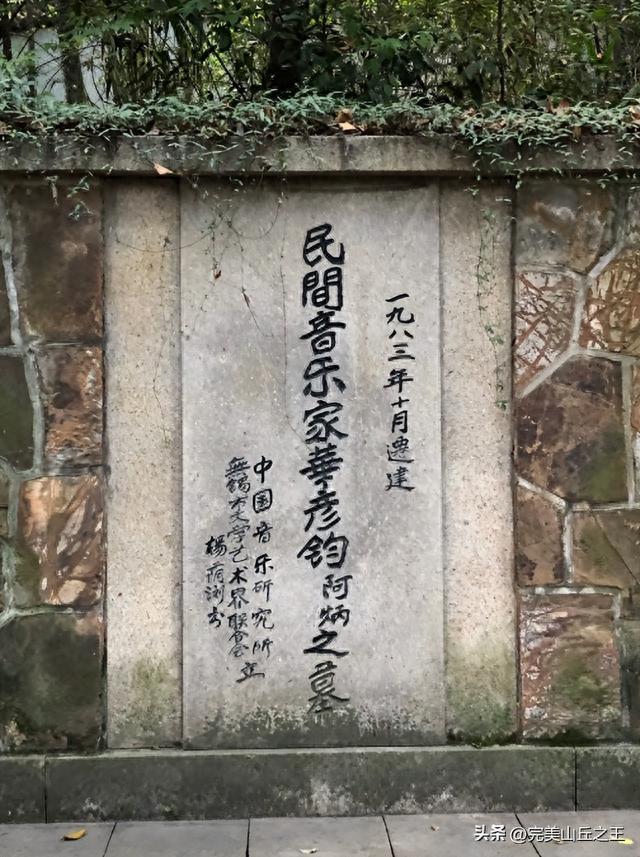 一九八三年十月遷建
民間音乐家華彦鈞阿炳之墓
中国音乐研究所
無锡市文学艺术界联合会立
楊荫浏书
头条 @完美山丘之王